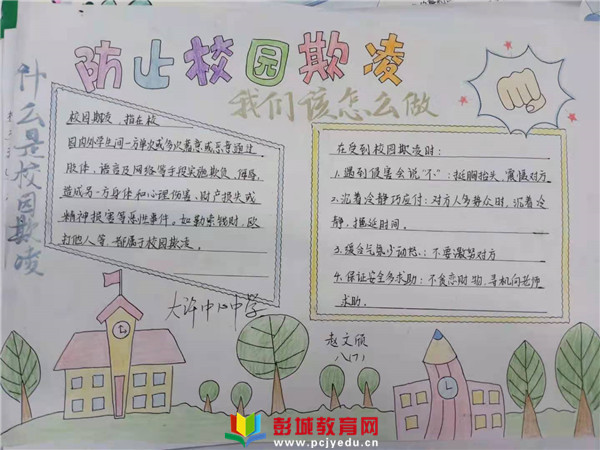 防止校园欺凌
我们该怎么做
什么是校园欺凌
校园欺凌,指在校
园内外学生间一方单次或多次蓄意或恶意通过
肢体,语言及网络等手段实施欺负,侮辱,
造成另一方身体和心理伤害、财产损失或
精神损害等恶性事件。如勒索钱财,殴
打他人等,都属于校园欺凌。
在受到校园欺凌时:
1.遇到侵害会说“不”:挺胸抬头,震慑对方
2.沉着冷静巧应付:对方人多势众时,沉着冷
静,拖延时间。
3.缓和气氛少动怒:不要激努对方
4.保证安全多求助:不贪恋财物,寻机向老师
求助。
大许中心中学
赵文颀
八(7)
彭城教育网
www.pcjyedu.cn